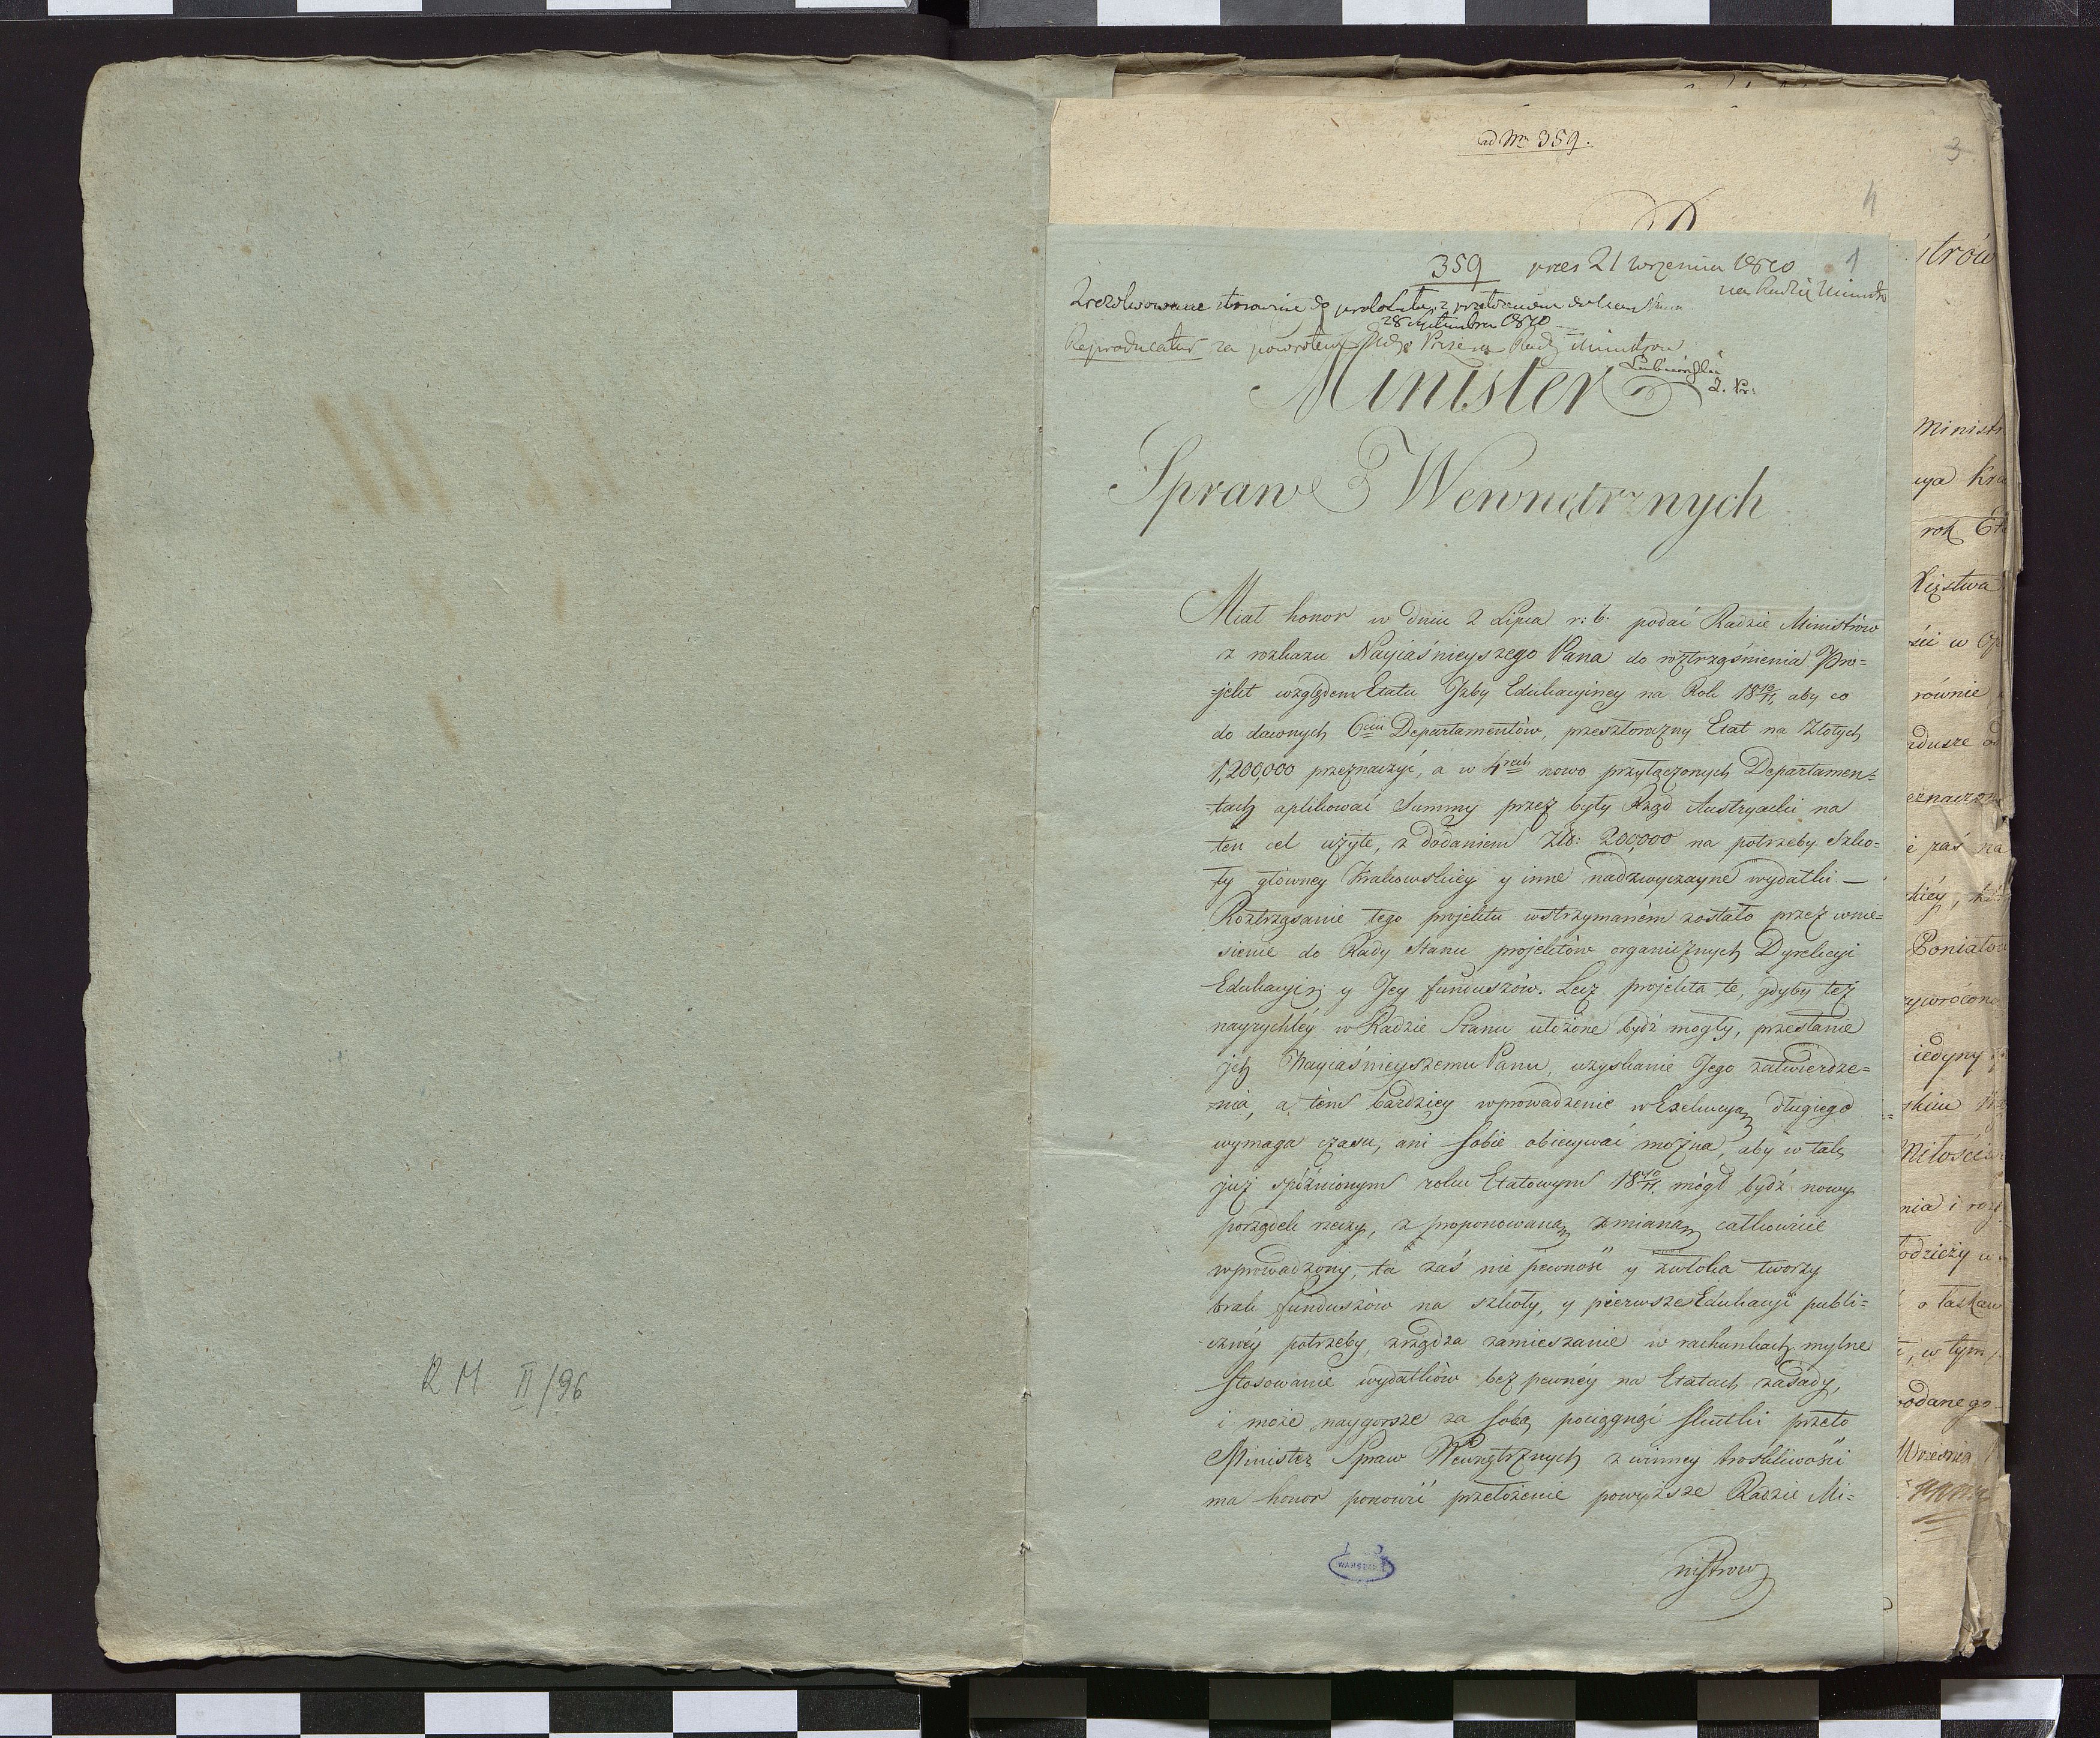 R M II/96
ad Nr 359.
3
4
359 prez 21 Września 1810 1
na Radzie Ministr
Zrezolwowane stosownie do protokułu, z
28 septembra 1810
Reproducatur za powrotem Prezesa Rady Ministrow
Lubieński
Minister
Spraw Wewnętrznych
Miał honor w dniu 2 Lipca r: b: podać Radzie Ministrów
z rozkazu Nayiaśnieyszego Pana do roztrząśnienia Pro=
=jekt względem Etatu Jzby Edukacyiney na Rok 18 10/11, aby co
do dawnych 6ciu Departamentów, przeszłoroczny Etat na Złotych
1,200,000 przeznaczyć, a w 4rech nowo przyłączonych Departamen=
tach aplikować Summy przez były Rząd Austryacki na
ten cel użyte, z dodaniem Złt: 200,000 na potrzeby Szko=
ły główney Krakowskiey y inne nadzwyczayne wydatki. —
Roztrząsanie tego projektu wstrzymaném zostało przez wnie=
sienie do Rady Stanu projektów organicznych Dyrekcyi
Edukacyiney y Jey funduszów. Lecz projekta te, gdyby też
nayrychléy w Radzie Stanu ułożone bydź mogły, przesłanie
jch Nayiaśnieyszemu Panu, uzyskanie Jego zatwierdze=
=nia, a tém bardziey wprowadzenie w Exekucyą długiego
wymaga czasu, ani sobie obiecywać można, aby w tak
już spóźnionym roku Etatowym 18 10/11 mógł bydź nowy
porządek rzeczy, z proponowaną zmianą całkowicie
wprowadzony, ta zaś nie pewność y zwłoka tworzy
brak funduszów na szkoły, y pierwsze Edukacyi publi=
czney potrzeby, zrządza zamieszanie w rachunkach mylne
stosowanie wydatków bez pewnéy na Etatach zasady,
i może naygorsze za sobą pociągnąć skutki przeto
Minister Spraw Wewnętrznych z winney troskliwości
ma honor ponowić przełożenie powyższe Radzie Mi=
nistrow
WARSZAWA
strów
Minist
rok
Xięstwa
równie
zaś na
Poniatow
iedyny
nia i roz
o łaskaw
w tym
odanego
Września